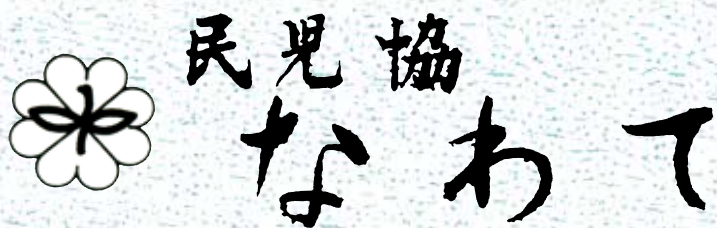 民児協
なわて